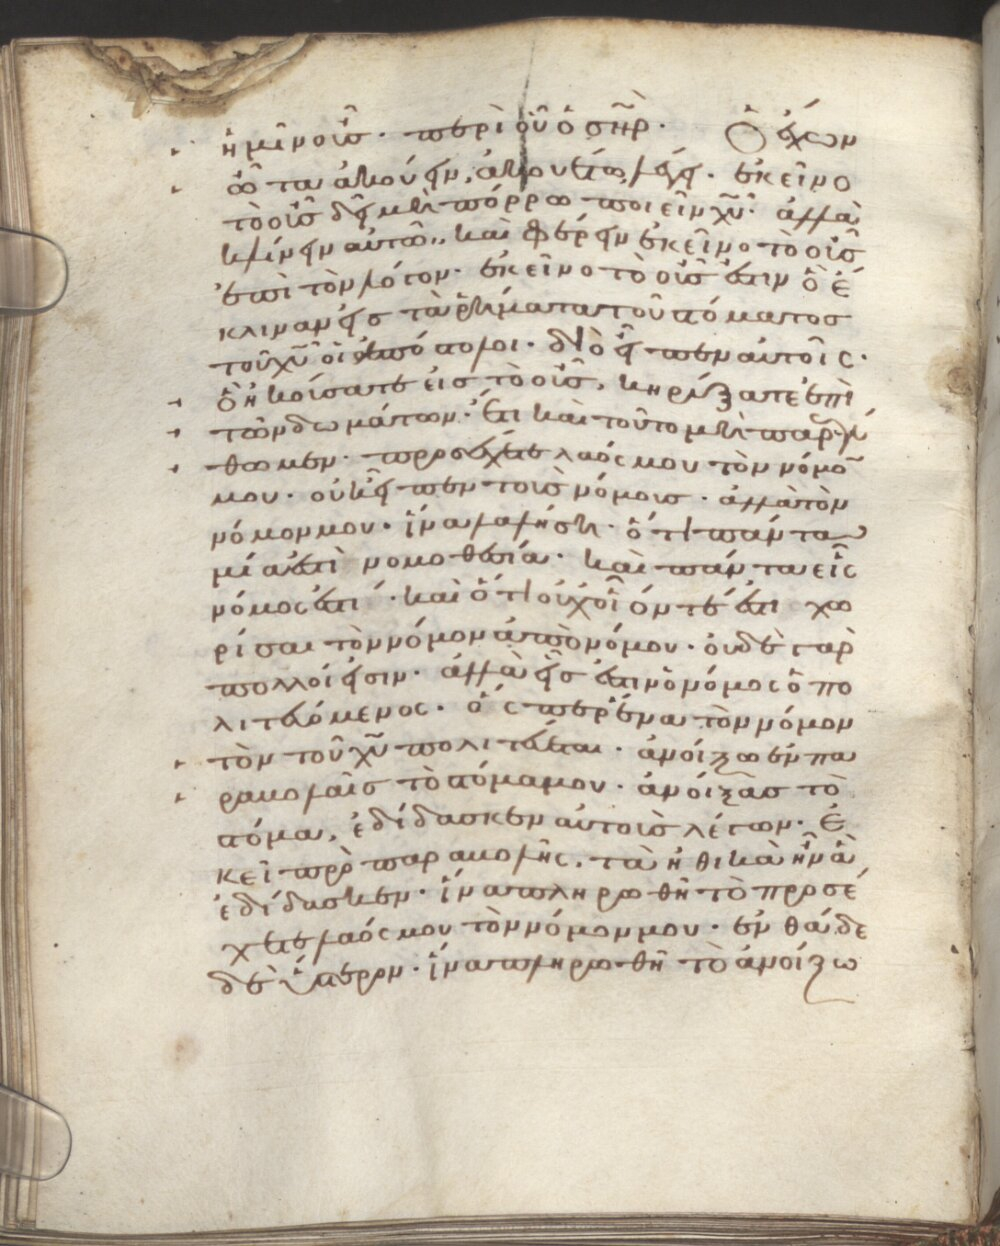 ἡμῖν οὖς · περὶ οὗ ὁ σ̅η̅ρ̅ · Ὁ ἔχων
ὦτα ἀκούειν, ἀκουέτω λέγει · ἐκεῖνο
τὸ οὖς δεῖ μὴ πόρρω ποιεῖν χ̅υ̅ · ἀλλὰ
κλίνειν αὐτῶ, καὶ φέρειν ἐκεῖνο τὸ οὖς
ἐπὶ τὸν λόγον · ἐκεῖνο τὸ οὖς ἐστιν ὃ ἔ
κλιναν εἰς τὰ ῥήματα τοῦ στόματος
τοῦ χ̅υ̅ οἱ ἀπόστολοι · διὸ εἶπεν αὐτοῖς ·
ὃ ἠκούσατε εἰς τὸ οὖς, κηρύξατε ἐπὶ
τῶν δωμάτων · ἔτι καὶ τοῦτο μὴ παρέλ
θωμεν · προσέχετε λαός μου τὸν νόμον
μου · οὐκ εἶπεν τοῖς νόμοις · ἀλλὰ τὸν
νόμον μου · ἵνα μάθης · ὅτι πάντα
μία ἐστὶ νομοθεσία · καὶ πάντα εἷς
νόμος ἐστί · καὶ ὅτι οὐχ οἷόν τέ ἐστι χω
ρίσαι τὸν νόμον ἀπὸ νόμου · οὐδὲ γὰρ
πολλοί εἰσιν · ἀλλὰ εἷς ἐστιν ὁ νόμος ὁ πο
λιτευόμενος · ὅσπερ ἕνα τὸν νόμον
τὸν τοῦ χ̅υ̅ πολιτεύεται · ἀνοίξω ἐν πα
ραβολαῖς τὸ στόμα μου · ἀνοίξας τὸ
στόμα, ἐδίδασκεν αὐτοὺς λέγων · ἐ
κεῖ πρὸ παραβολῆς, τὰ ἠθικὰ ἦν ἃ
ἐδίδασκεν · ἵνα πληρωθῆ τὸ προσέ
χετε λαός μου τὸν νόμον μου · ἐνθάδε
δὲ ὕστερον · ἵνα πληρωθῆ τὸ ἀνοίξω